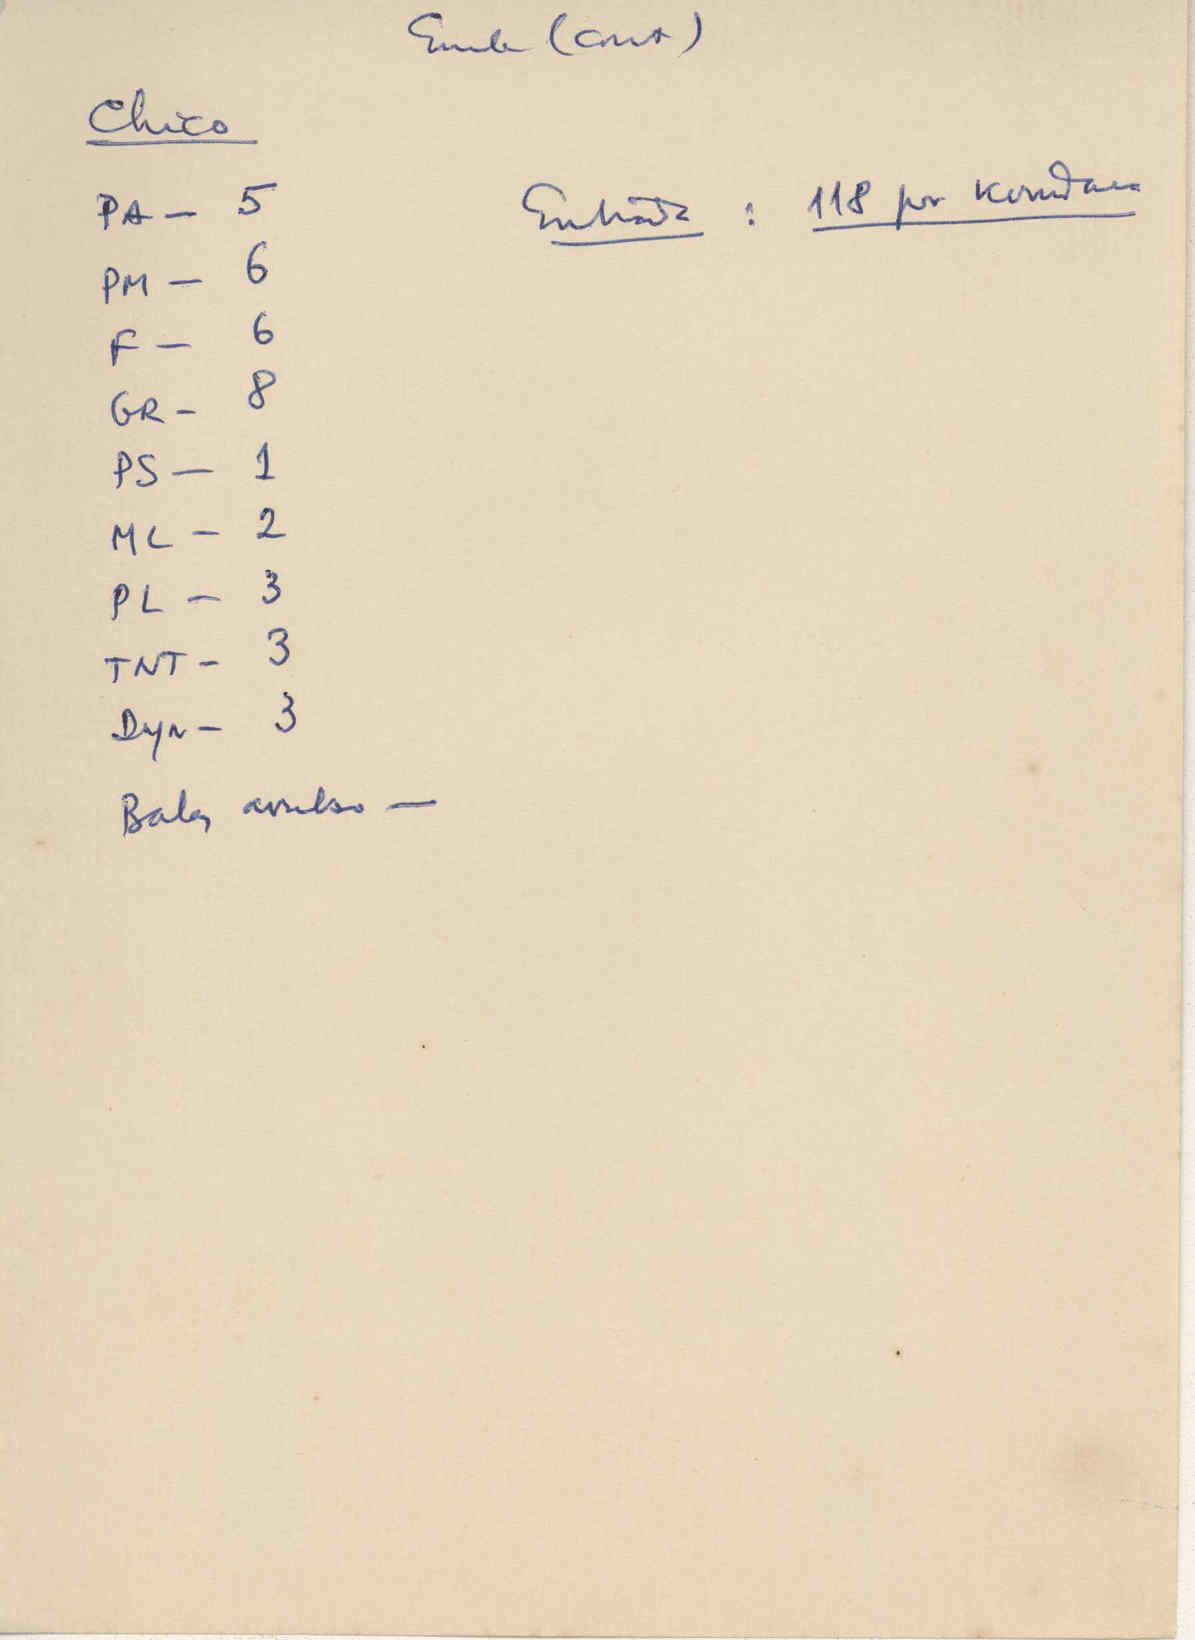 (cont)
Chico
PA — 5
Entrada : 118 por
PM — 6
F — 6
GR — 8
PS — 1
ML — 2
PL — 3
TNT — 3
Dyn — 3
Balas avulso —